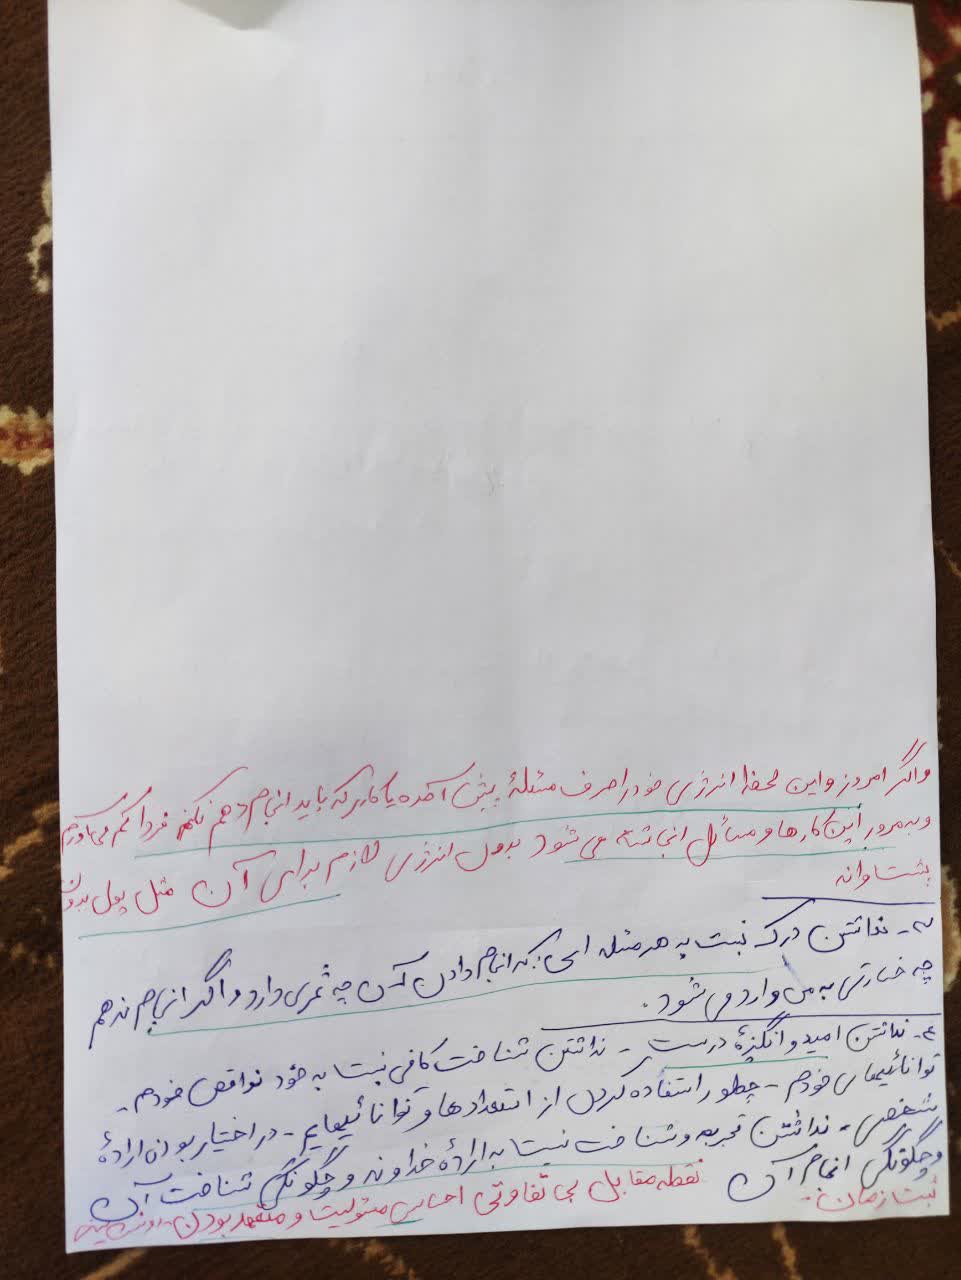 و اگر امروز و این لحظه انرژی خود را صرف مسئلهٔ پیش آمده یا کاری که باید انجام دهم نکنم فردا کم می‌آورم
و به مرور این کارها و مسائل انباشته می‌شود بدون انرژی لازم برای آن مثل پول بدون
پشتاوانه
۳- نداشتن درک نسبت به هر مسئله ای: که انجام دادن آن چه ثمری دارد و اگر انجام ندهم
چه خسارتی به من وارد می شود.
۴- نداشتن امید و انگیزهٔ درست - نداشتن شناخت کافی نسبت به خود نواقص خودم -
توانائیهای خودم - چطور استفاده کردن از استعدادها و توانائیهایم - در اختیار بودن ارادهٔ
شخصی - نداشتن تجربه و شناخت نسبت به ارادهٔ خداوند و چگونگی شناخت آن
و چگونگی انجام آن نقطه مقابل بی تفاوتی احساس مسئولیت و متعهد بودن
ثبت زمان -